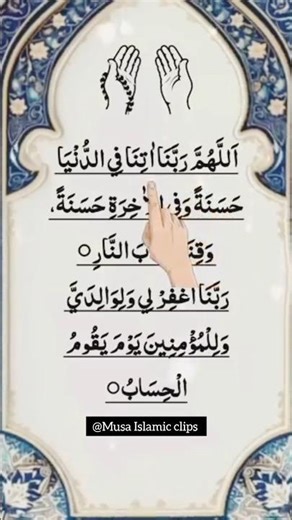 اَللّٰهُمَّ رَبَّنَا اٰتِنَا فِي الدُّنْيَا
حَسَنَةً وَفِي الْاٰخِرَةِ حَسَنَةً،
النَّارِ ○
رَبَّنَا اغْفِرْ لِي وَلِوَالِدَيَّ
وَلِلْمُؤْمِنِينَ يَوْمَ يَقُومُ
الْحِسَابُ ○
@Musa Islamic clips